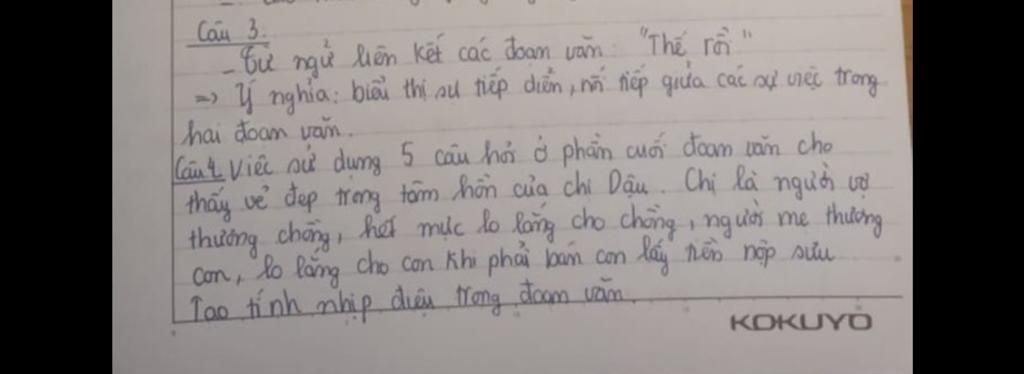 Câu 3:
- Từ ngữ liên kết các đoạn văn: "Thế rồi"
=> Ý nghĩa: biểu thị sự tiếp diễn, nối tiếp giữa các sự việc trong
hai đoạn văn.
Câu 4. Việc sử dụng 5 câu hỏi ở phần cuối đoạn văn cho
thấy vẻ đẹp trong tâm hồn của chị Dậu. Chị là người vợ
thương chồng, hết mực lo lắng cho chồng, người mẹ thương
con, lo lắng cho con khi phải bán con lấy tiền nộp sưu
Tạo tính nhịp điệu trong đoạn văn.
KOKUYO